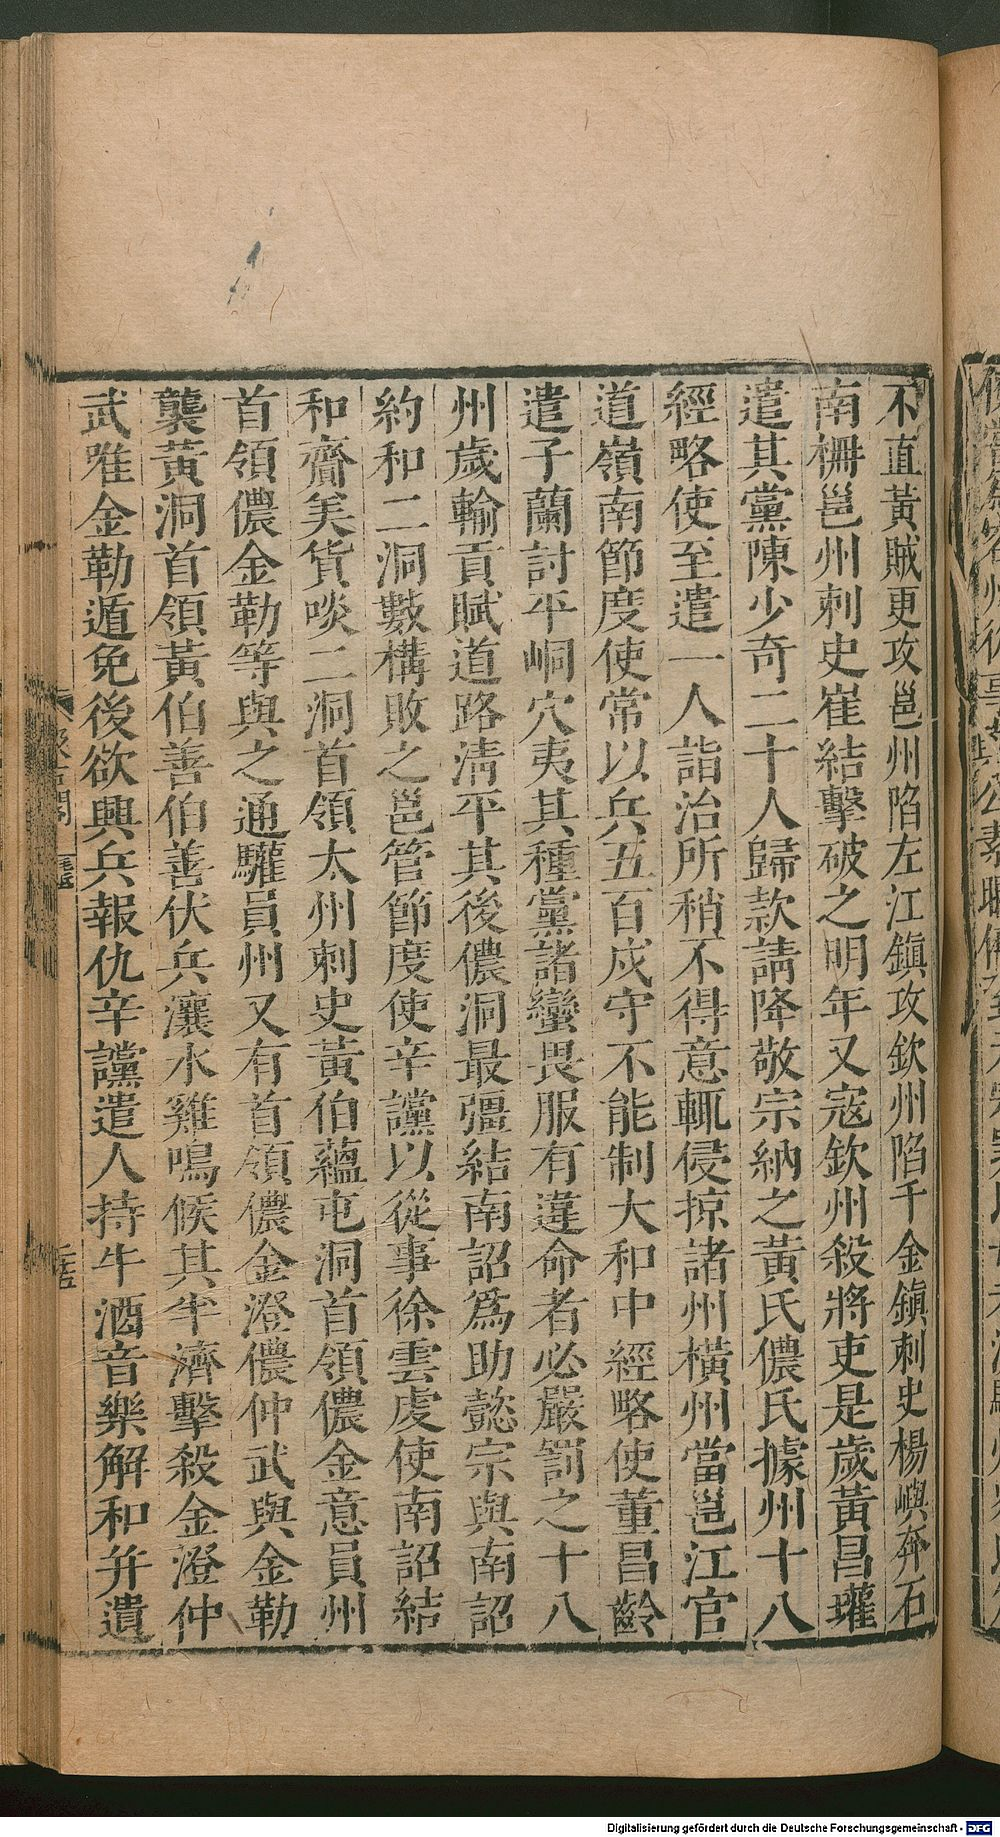 不直黃賊更攻邕州陷左江鎮攻欽州陷千金鎮刺史楊嶼奔石
南柵邕州刺史崔結擊破之明年又寇欽州殺將吏是歲黃昌瓘
遣其黨陳少奇二十人歸款請降敬宗納之黃氏儂氏據州十八
經略使至遣一人詣治所稍不得意輒侵掠諸州橫州當邕江官
道嶺南節度使常以兵五百戍守不能制大和中經略使董昌齡
遣子蘭討平峒穴夷其種黨諸蠻畏服有違命者必嚴罰之十八
州歲輸貢賦道路清平其後儂洞最彊結南詔爲助懿宗與南詔
約和二洞數構敗之邕管節度使辛讜以從事徐雲虔使南詔結
和齎美貨啖二洞首領太州刺史黃伯蘊屯洞首領儂金意員州
首領儂金勒等與之通驩員州又有首領儂金澄儂仲武與金勒
襲黃洞首領黃伯善伯善伏兵瀼水雞鳴候其半濟擊殺金澄仲
武唯金勒遁免後欲興兵報仇辛讜遣人持牛酒音樂解和并遺
Digitalisierung gefördert durch die Deutsche Forschungsgemeinschaft - DFG